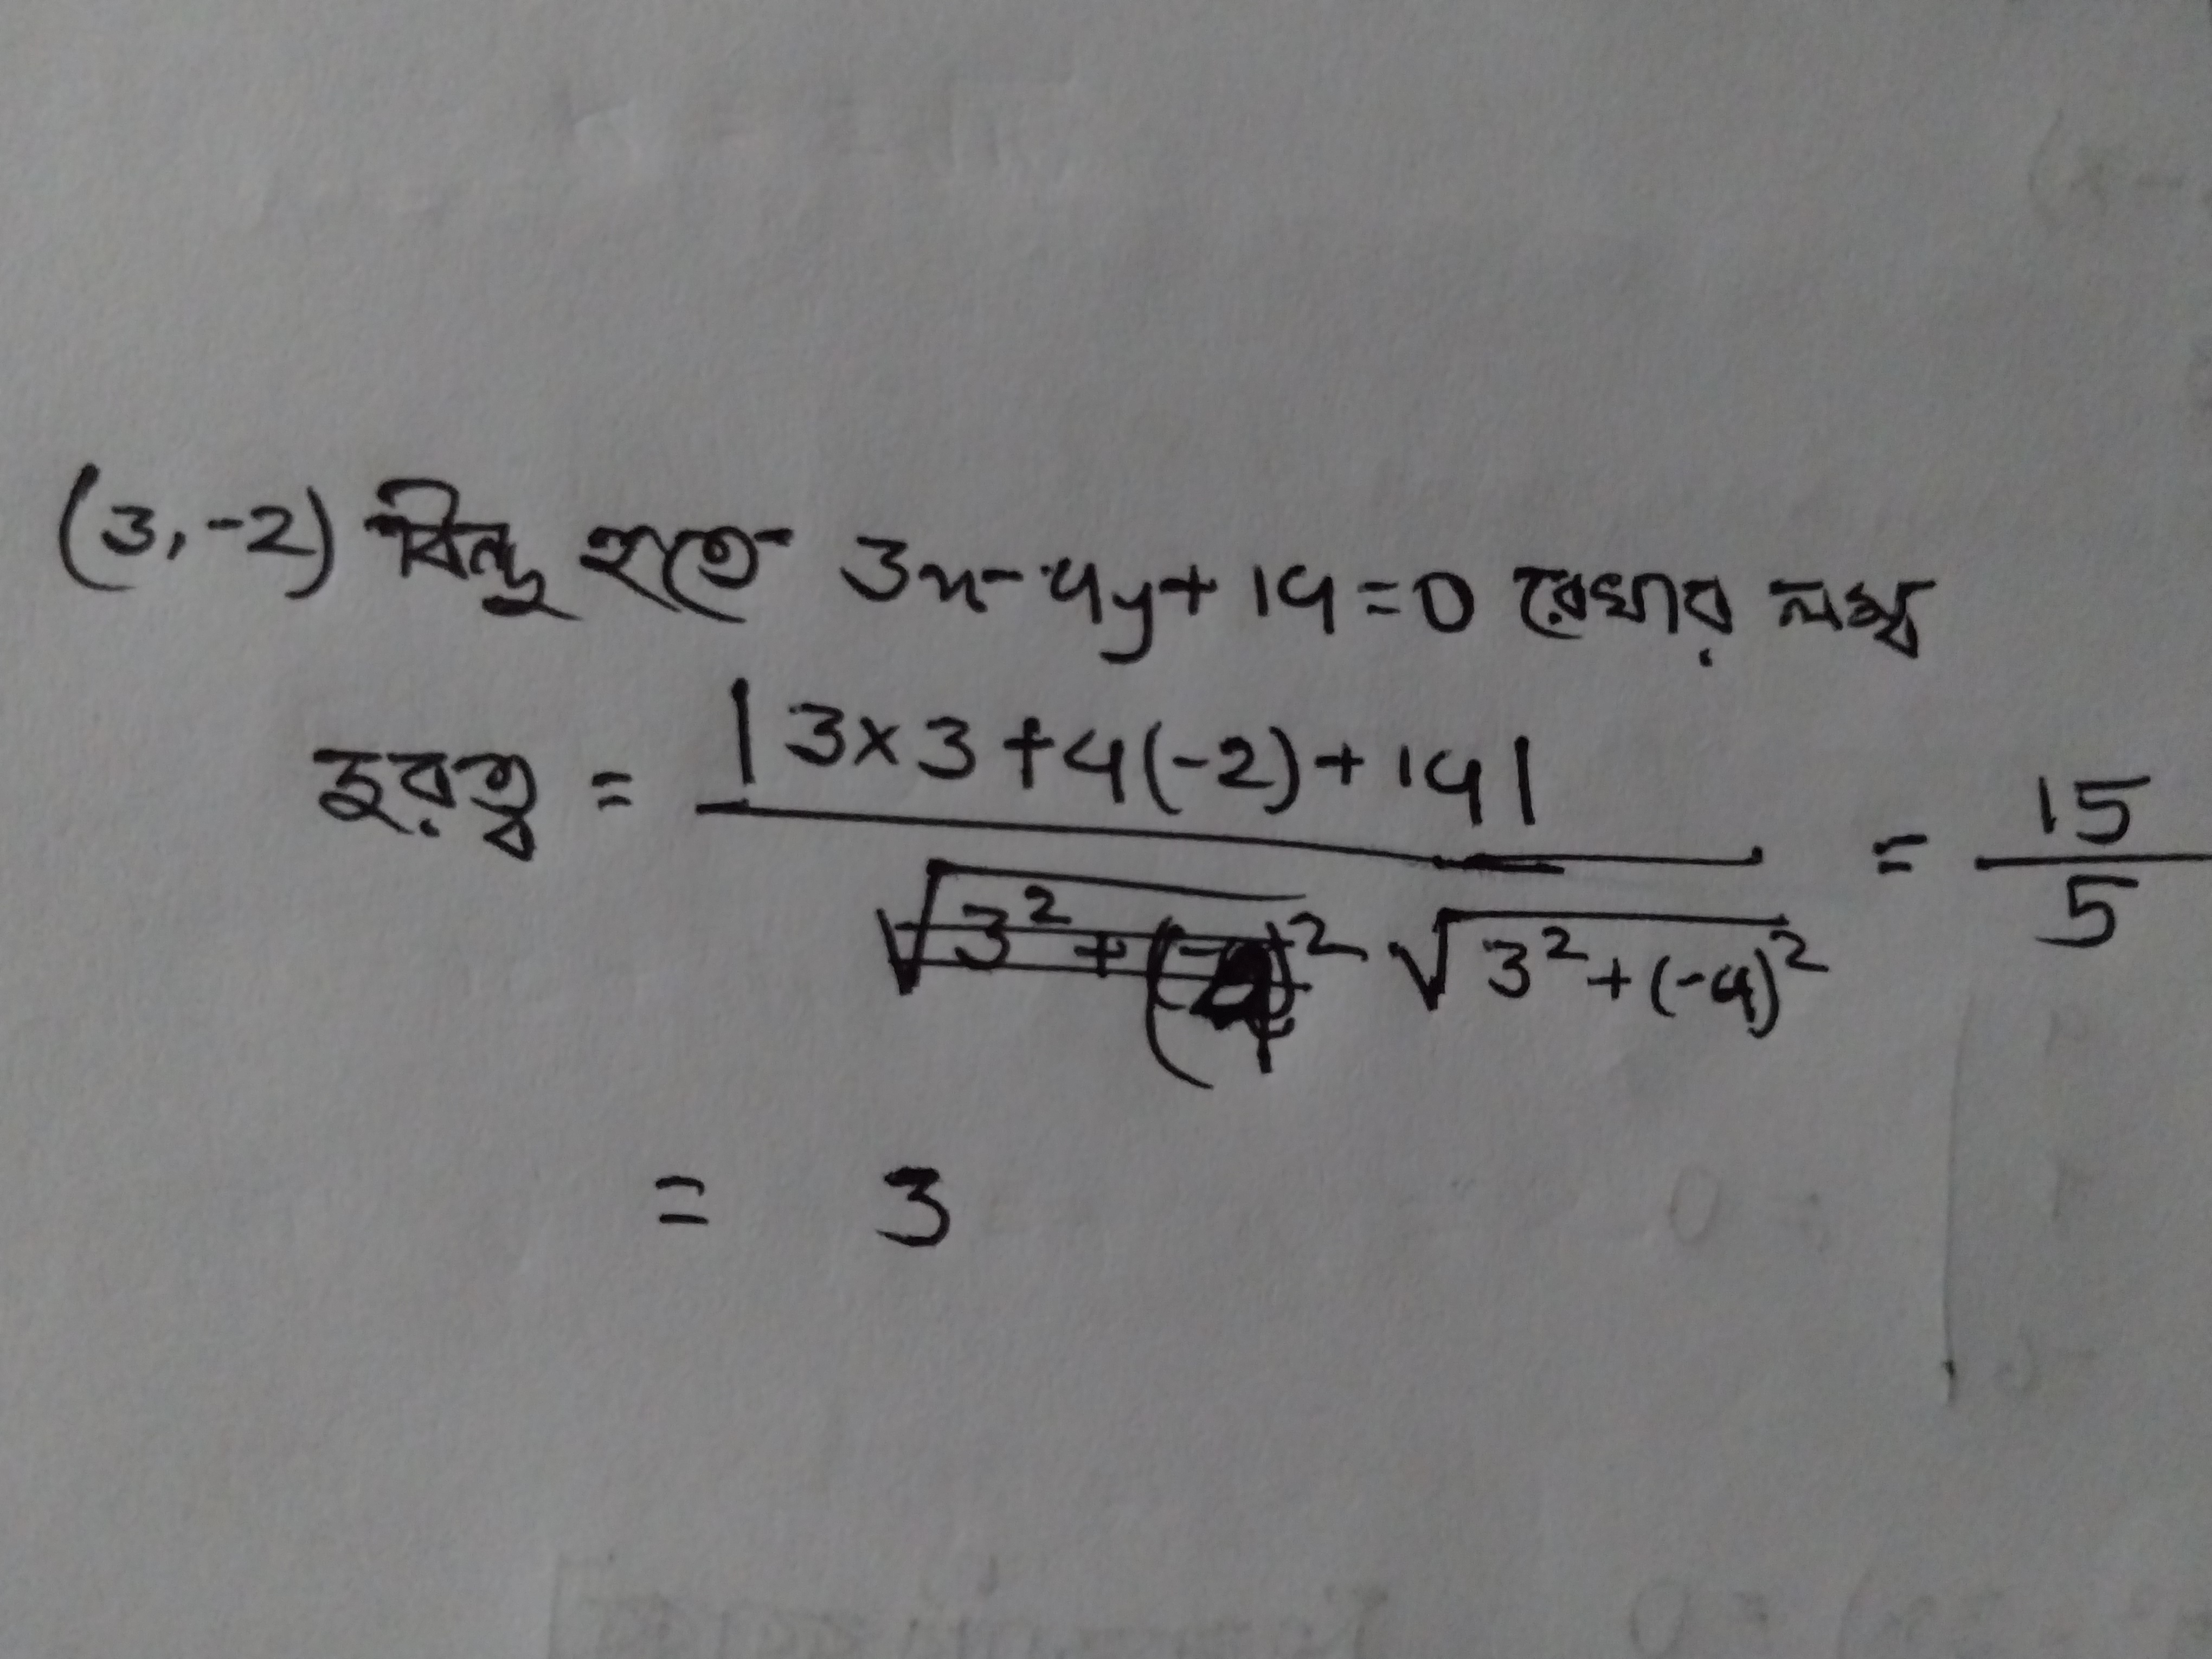 (3, -2) বিন্দু হতে 3x - 4y + 14 = 0 রেখার লম্ব
দুরত্ব = |3×3+4(-2)+14| / √3²+(-4)² = 15/5
= 3